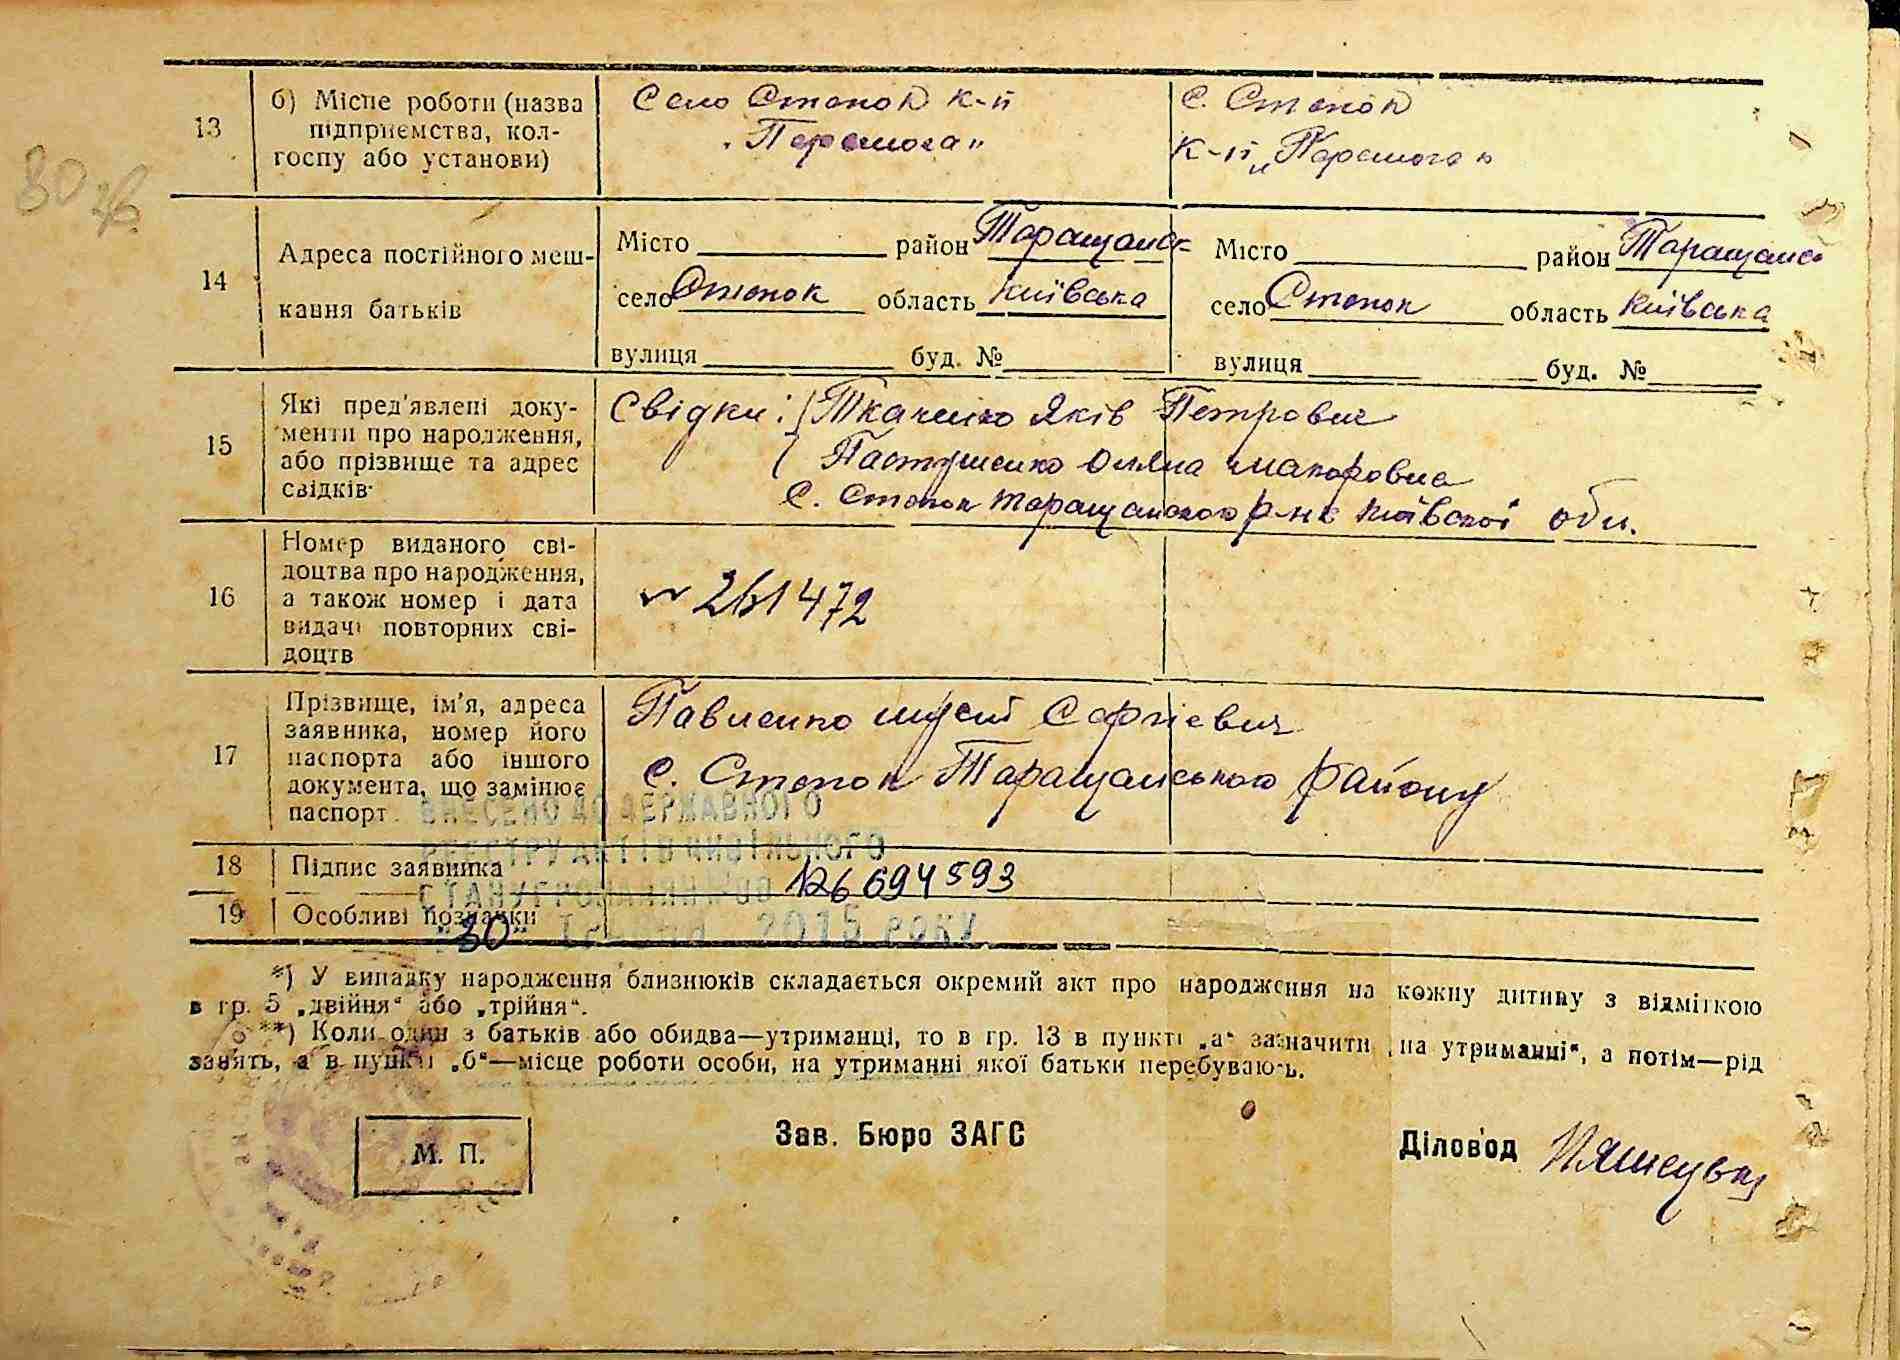 80 зв.
13 б) Місце роботи (назва підприємства, колгоспу або установи)
Село Степок к-п
„Перемога"
с. Степок
к-п „Перемога"
14 Адреса постійного мешкання батьків
Місто район Таращанськ
село Степок область Київська
вулиця буд. №
Місто район Таращанс
село Степок область Київська
вулиця буд. №
15 Які пред'явлені документи про народження, або прізвище та адрес свідків
Свідки: Ткаченко Яків Петрович
Пастушенко Макаровна
с. Степок Таращанського р-не Київської обл.
16 Номер виданого свідоцтва про народження, а також номер і дата видачі повторних свідоцтв
№ 261472
17 Прізвище, ім'я, адреса заявника, номер його паспорта або іншого документа, що замінює паспорт
Павленко Мусій Сергієвич
с. Степок Таращанського району
ВНЕСЕНО ДО ДЕРЖАВНОГО
РЕЄСТРУ АКТІВ ЦИВІЛЬНОГО
18 Підпис заявника
СТАНУ ГРОМАДЯН 126694593
19 Особливі позначки
„30" 2015 РОКУ
*) У випадку народження близнюків складається окремий акт про народження на кожну дитину з відміткою
в гр. 5 „двійня" або „трійня".
**) Коли один з батьків або обидва—утриманці, то в гр. 13 в пункті „а" зазначити „на утриманні", а потім—рід
занять, а в пункті „б"—місце роботи особи, на утриманні якої батьки перебувають.
М. П.
Зав. Бюро ЗАГС
Діловод